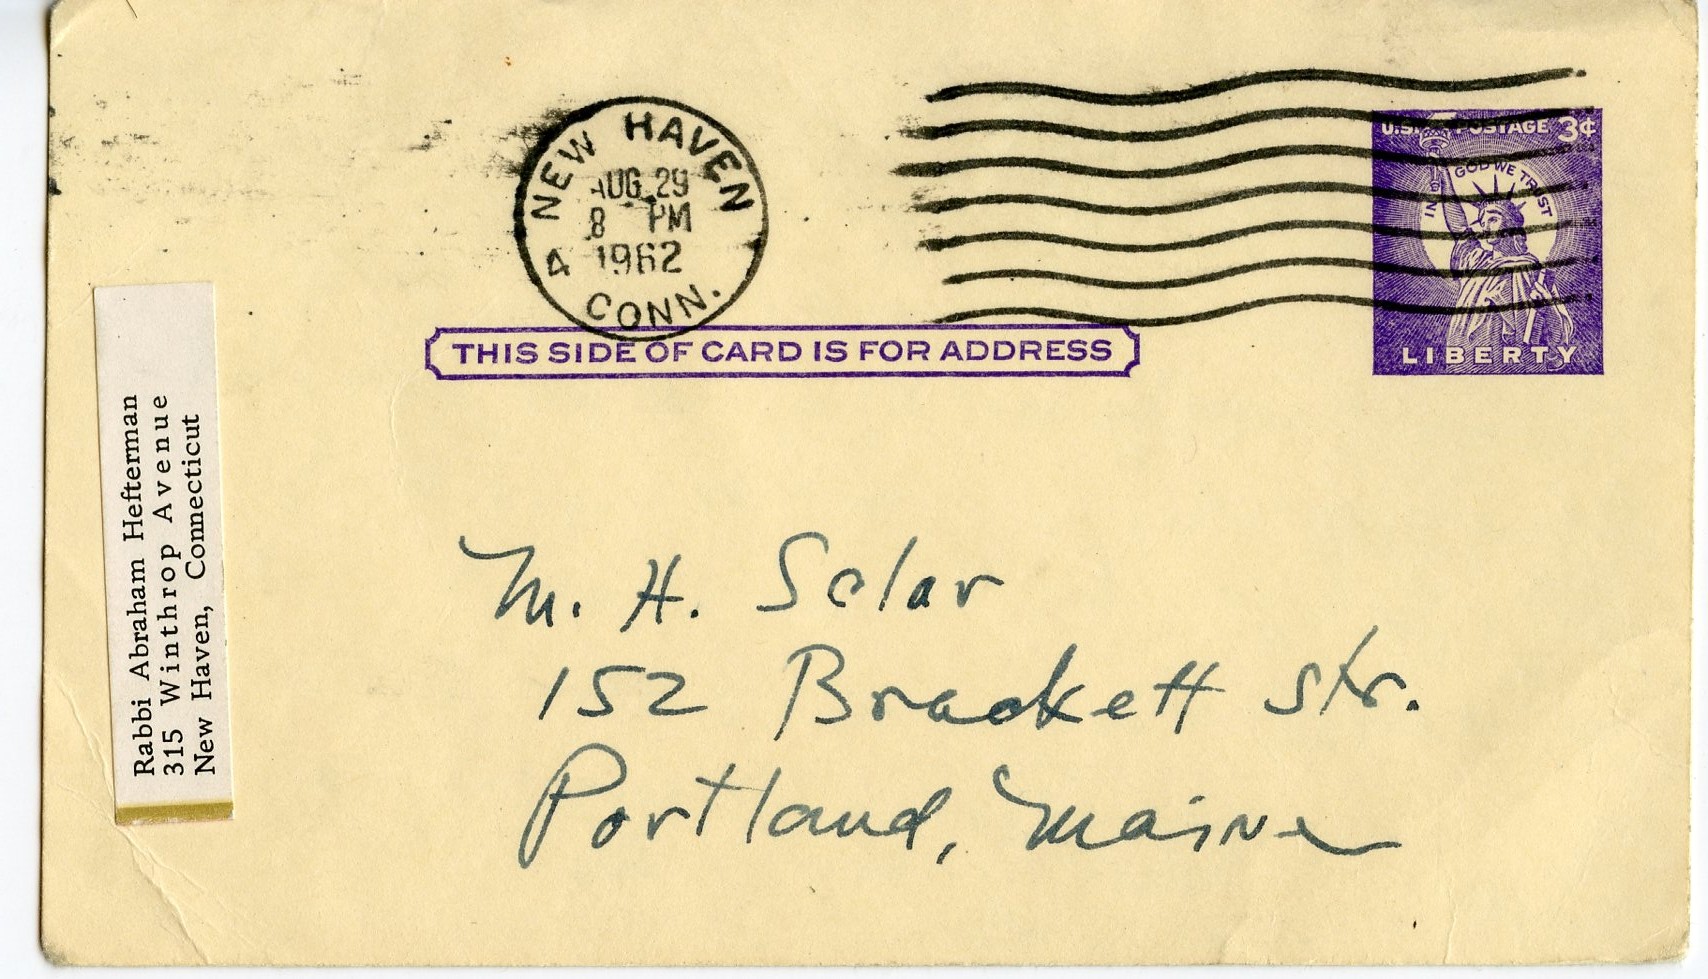 NEW HAVEN
AUG 29
8 PM
1962
4
CONN.
U.S. POSTAGE 3¢
IN GOD WE TRUST
LIBERTY
THIS SIDE OF CARD IS FOR ADDRESS
Rabbi Abraham Hefterman
315 Winthrop Avenue
New Haven, Connecticut
M. H. Solar
152 Brackett Str.
Portland, Maine